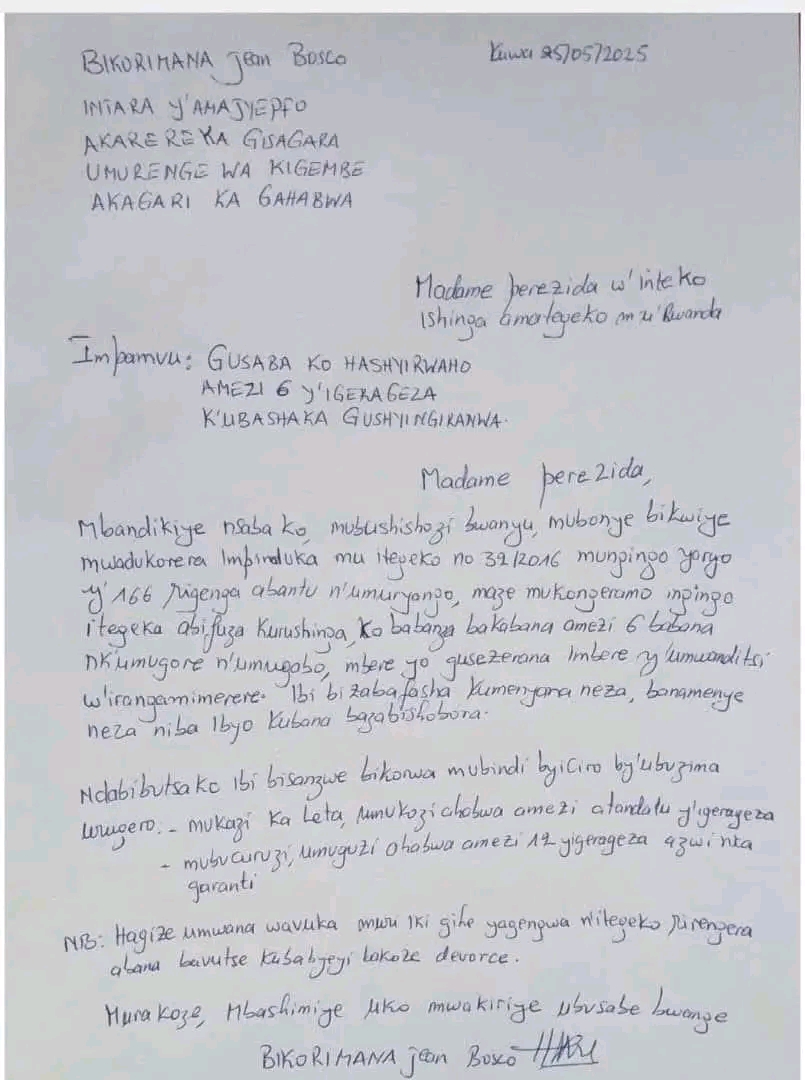 BIKORIMANA Jean Bosco
Kuwa 25/05/2025
INTARA Y'AMAJYEPFO
AKARERE KA GISAGARA
UMURENGE WA KIGEMBE
AKAGARI KA GAHABWA
Madame perezida w'inteko
Ishinga amategeko mu'Rwanda
Impamvu: GUSABA KO HASHYIRWAHO
AMEZI 6 Y'IGERAGEZA
K'UBASHAKA GUSHYINGIRANWA.
Madame perezida,
Mbandikiye nsaba ko, mubushishozi bwanyu, mubonye bikwiye
mwadukorera Impinduka mu itegeko no 32/2016 mungingo yaryo
y'166 rigenga abantu n'umuryango, maze mukongeramo ingingo
itegeka abifuza Kurushinga, Ko babanza bakabana amezi 6 babana
nk'umugore n'umugabo, mbere yo gusezerana Imbere y'umwanditsi
w'irangamimerere. Ibi bizabafasha Kumenyana neza, banamenye
neza niba Ibyo Kubana bazabishobora.
Ndabibutsa ko ibi bisanzwe bikorwa mubindi byiciro by'ubuzima
urugero: - mukazi Ka Leta, umukozi ahabwa amezi atandatu y'igerageza
- mubucuruzi, umuguzi ahabwa amezi 12 yigerageza azwi nka
garanti
NB: Hagize umwana wavuka muri iki gihe yagengwa n'itegeko rirengera
abana bavutse Kubabyeyi bakoze devorce.
Murakoze, Mbashimiye uko mwakiriye ubusabe bwange
BIKORIMANA jean Bosco